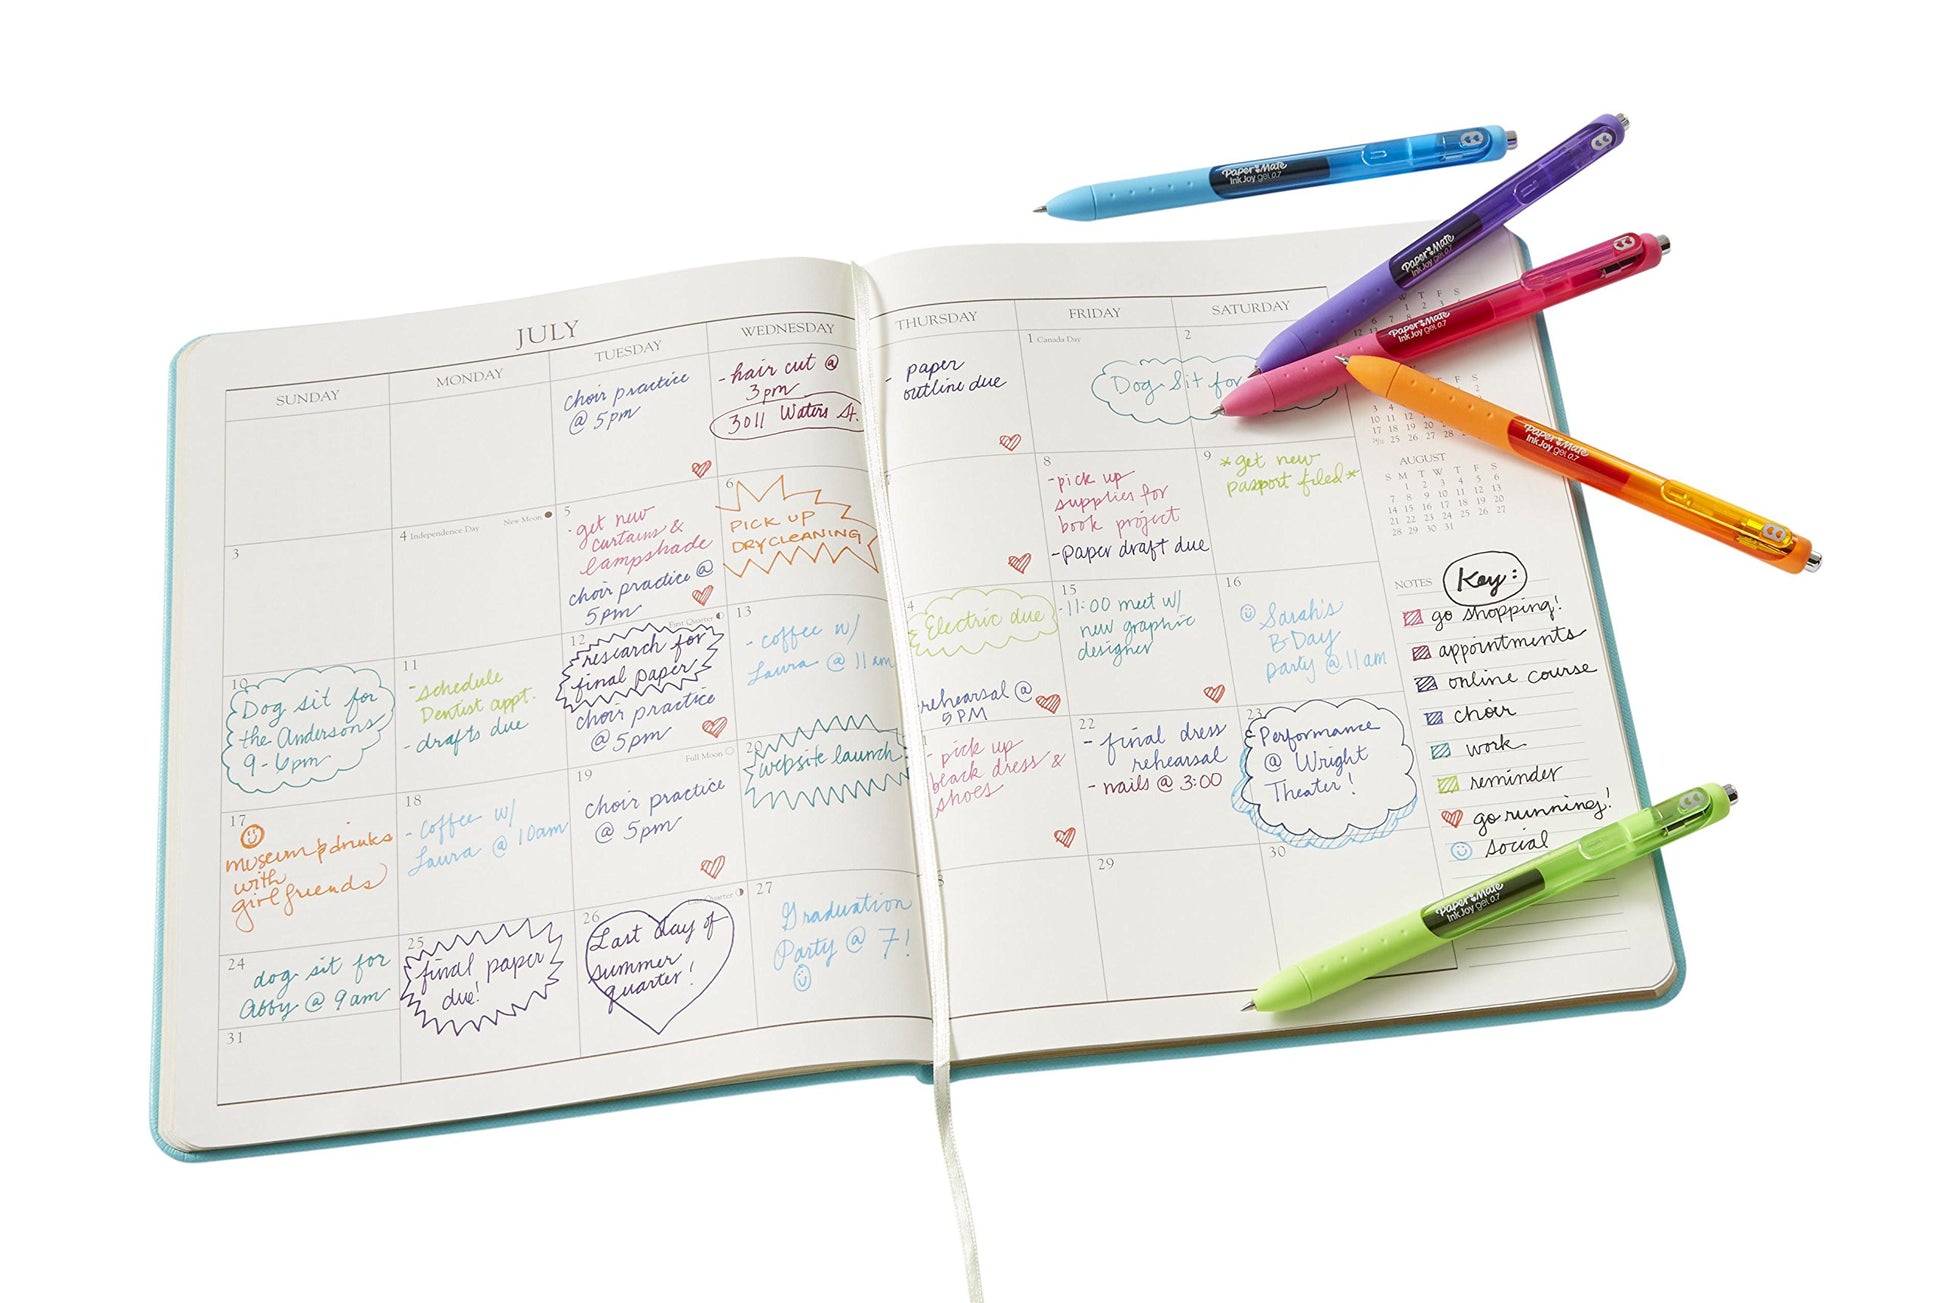 JULY
SUNDAY
MONDAY
TUESDAY
WEDNESDAY
THURSDAY
FRIDAY
SATURDAY
choir practice
@ 5pm
- hair cut @
3pm
3011 Waters St.
- paper
outline due
1 Canada Day
2
Dog Sit for
3
4 Independence Day
New Moon
5
- get new
curtains &
lampshade
choir practice @
5pm
6
PICK UP
DRYCLEANING
8
- pick up
supplies for
book project
- paper draft due
9
* get new
passport filed *
10
Dog sit for
the Andersons
9-6pm
11
- schedule
Dentist appt.
- drafts due
First Quarter
12
research for
final paper
choir practice
@ 5pm
13
- coffee w/
Laura @ 11am
4
Electric due
rehearsal @
5PM
15
- 11:00 meet w/
new graphic
designer
16
Sarah's
B-Day
party @ 11am
17
museum & drinks
with
girlfriends
18
- coffee w/
Laura @ 10am
Full Moon
19
choir practice
@ 5pm
20
website launch
- pick up
black dress &
shoes
22
- final dress
rehearsal
- nails @ 3:00
23
Performance
@ Wright
Theater!
24
dog sit for
Abby @ 9am
25
final paper
due!
Quarter
26
Last day of
summer
quarter!
27
Graduation
Party @ 7!
29
30
31
AUGUST
S M T W T F S
1 2 3 4 5 6
7 8 9 10 11 12 13
14 15 16 17 18 19 20
21 22 23 24 25 26 27
28 29 30 31
NOTES
Key:
go shopping!
appointments
online course
choir
work
reminder
go running!
social
Paper Mate
InkJoy gel 0.7
Paper Mate
InkJoy gel 0.7
Paper Mate
InkJoy gel 0.7
Paper Mate
InkJoy gel 0.7
Paper Mate
InkJoy gel 0.7